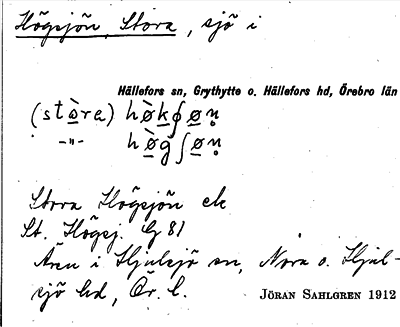 Högsjön, Stora, sjö i
Hällefors sn, Grythytte o. Hällefors hd, Örebro län
(stò̱ra) hø̱̀kʃø̱n̥
-"- hø̱̀gʃø̱n̥
Stora Högsjön ek
St. Högsj. G 81
Även i Hjulsjö sn, Nora o. Hjul-
sjö hd, Ör. l.
JÖRAN SAHLGREN 1912